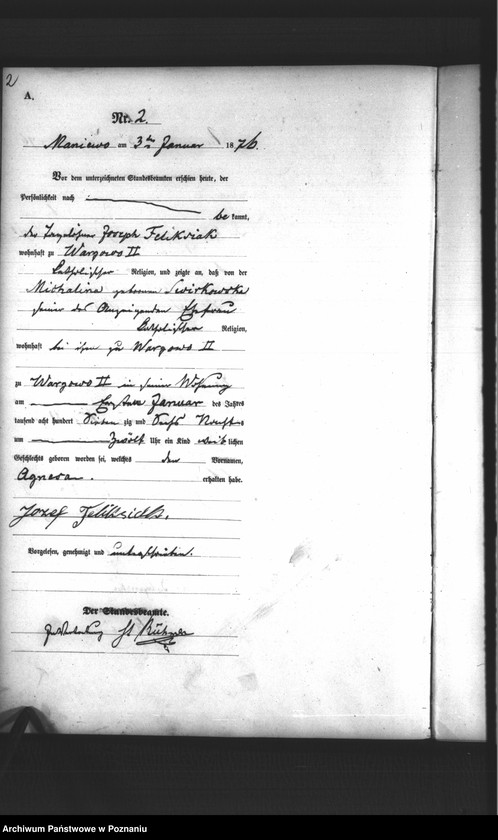 2
A.
Nr. 2.
Maniewo am 3ten Januar 1876.
Vor dem unterzeichneten Standesbeamten erschien heute, der
Persönlichkeit nach
bekannt,
der Tagelöhner Joseph Feliksiak
wohnhaft zu Wargowo II
katholischer Religion, und zeigte an, daß von der
Michalina geborenen
seiner des Anzeigenden Ehefrau
katholischer Religion,
wohnhaft bei ihm zu Wargowo II
zu Wargowo II in seiner Wohnung
am ersten Januar des Jahres
tausend acht hundert sieben zig und sechs Nachts
um zwölf Uhr ein Kind weiblichen
Geschlechts geboren worden sei, welches den Vornamen,
erhalten habe.
Jozef Feliksiak.
Vorgelesen, genehmigt und unterschrieben.
Der Standesbeamte.
In Vertretung
Archiwum Państwowe w Poznaniu